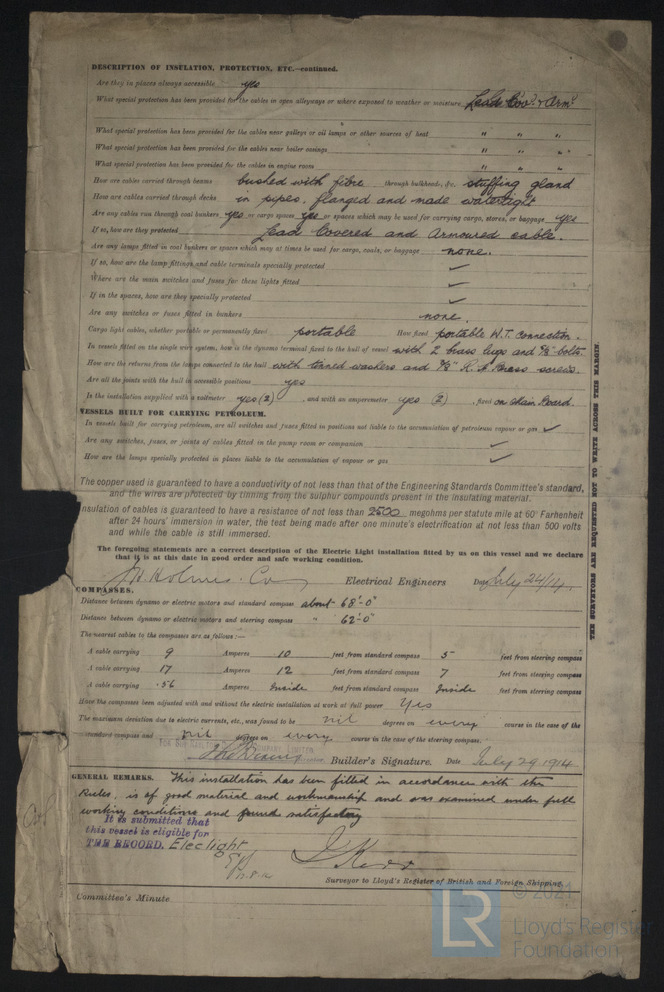 DESCRIPTION OF INSULATION, PROTECTION, ETC.—continued.
Are they in places always accessible yes
What special protection has been provided for the cables in open alleyways or where exposed to weather or moisture Lead Cov'd & Arm'd
What special protection has been provided for the cables near galleys or oil lamps or other sources of heat " " "
What special protection has been provided for the cables near boiler casings " " "
What special protection has been provided for the cables in engine room " " "
How are cables carried through beams bushed with fibre through bulkheads, &c. stuffing gland
How are cables carried through decks in pipes, flanged and made watertight
Are any cables run through coal bunkers yes or cargo spaces yes or spaces which may be used for carrying cargo, stores, or baggage yes
If so, how are they protected Lead Covered and Armoured cable.
Are any lamps fitted in coal bunkers or spaces which may at times be used for cargo, coals, or baggage none.
If so, how are the lamp fittings and cable terminals specially protected ✓
Where are the main switches and fuses for these lights fitted ✓
If in the spaces, how are they specially protected ✓
Are any switches or fuses fitted in bunkers none.
Cargo light cables, whether portable or permanently fixed portable How fixed portable W.T. connection.
In vessels fitted on the single wire system, how is the dynamo terminal fixed to the hull of vessel with 2 brass lugs and bolts.
How are the returns from the lamps connected to the hull with tinned washers and Brass screws.
Are all the joints with the hull in accessible positions yes
Is the installation supplied with a voltmeter yes (2) , and with an amperemeter yes (2) , fixed on Main Board.
VESSELS BUILT FOR CARRYING PETROLEUM.
In vessels built for carrying petroleum, are all switches and fuses fitted in positions not liable to the accumulation of petroleum vapour or gas ✓
Are any switches, fuses, or joints of cables fitted in the pump room or companion ✓
How are the lamps specially protected in places liable to the accumulation of vapour or gas ✓
The copper used is guaranteed to have a conductivity of not less than that of the Engineering Standards Committee's standard,
and the wires are protected by tinning from the sulphur compounds present in the insulating material.
Insulation of cables is guaranteed to have a resistance of not less than 2500 megohms per statute mile at 60° Farhenheit
after 24 hours' immersion in water, the test being made after one minute's electrification at not less than 500 volts
and while the cable is still immersed.
The foregoing statements are a correct description of the Electric Light installation fitted by us on this vessel and we declare
that it is at this date in good order and safe working condition.
J.H. Holmes & Co Electrical Engineers Date July 24/14.
COMPASSES.
Distance between dynamo or electric motors and standard compass about 68'-0"
Distance between dynamo or electric motors and steering compass " 62'-0"
The nearest cables to the compasses are as follows:—
A cable carrying 9 Amperes 10 feet from standard compass 5 feet from steering compass
A cable carrying 17 Amperes 12 feet from standard compass 7 feet from steering compass
A cable carrying .56 Amperes Inside feet from standard compass Inside feet from steering compass
Have the compasses been adjusted with and without the electric installation at work at full power Yes
The maximum deviation due to electric currents, etc., was found to be nil degrees on every course in the case of the
standard compass and nil degrees on every course in the case of the steering compass.
Builder's Signature. Date July 29 1914
GENERAL REMARKS. This installation has been fitted in accordance with the
Rules, is of good material and workmanship and was examined under full
working conditions and found satisfactory
It is submitted that
this vessel is eligible for
THE RECORD. Elec light
Surveyor to Lloyd's Register of British and Foreign Shipping.
Committee's Minute
THE SURVEYORS ARE REQUESTED NOT TO WRITE ACROSS THIS MARGIN.
LR
© 2021
Lloyd's Register
Foundation